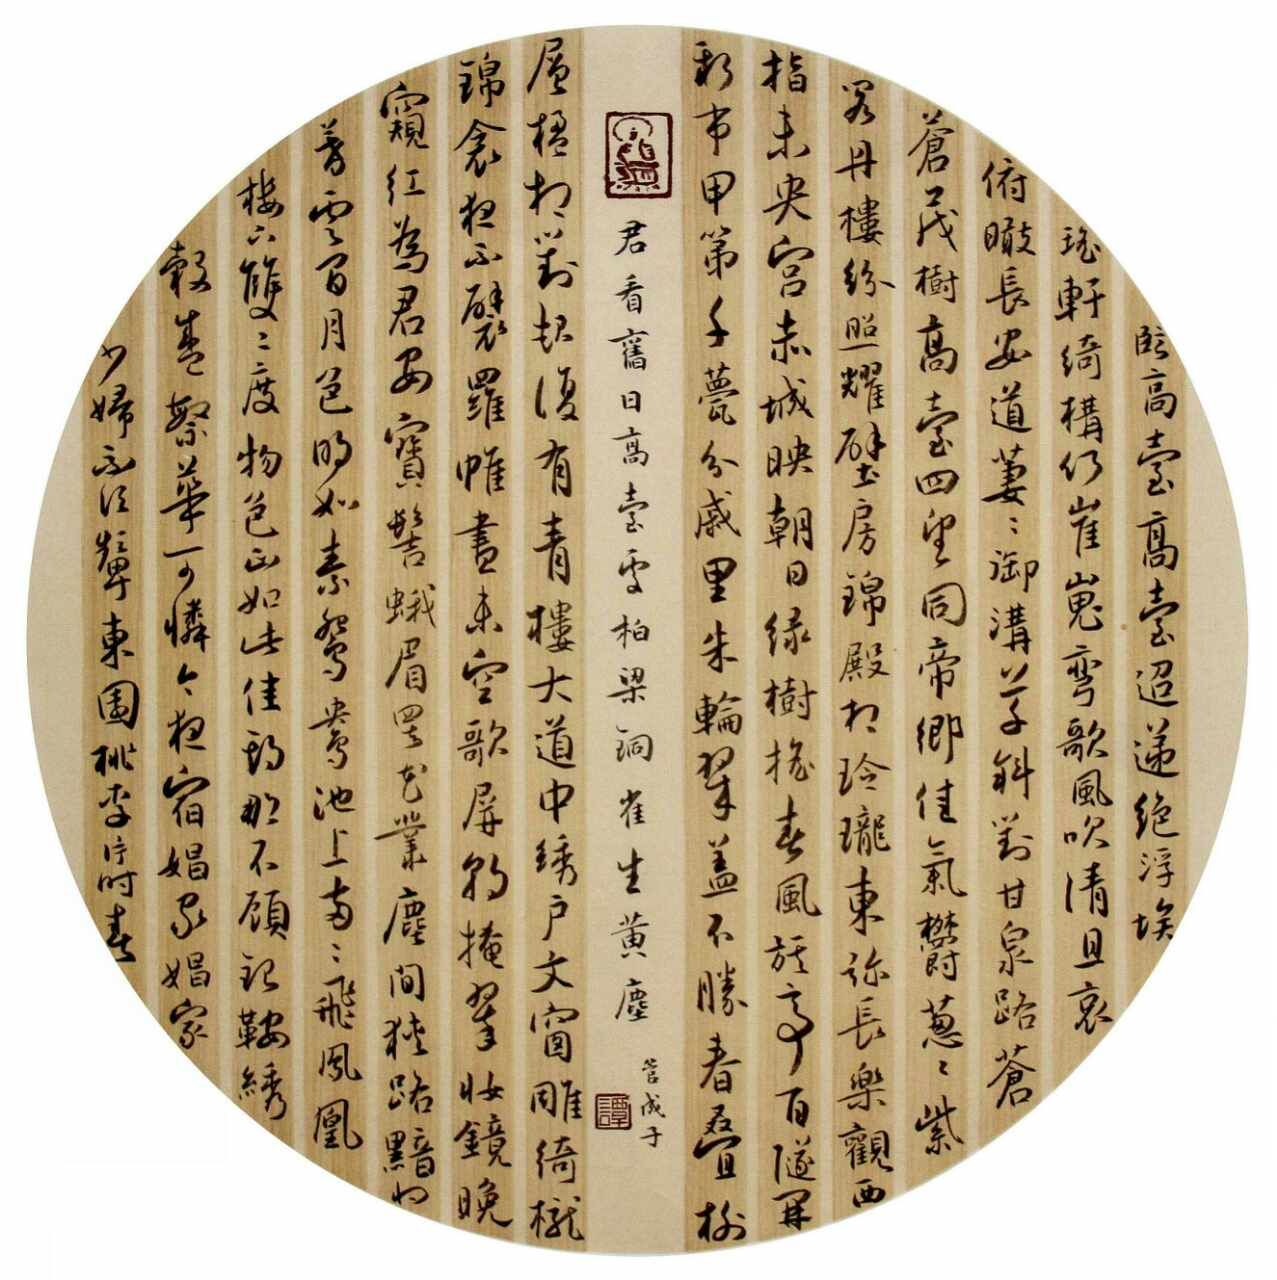 臨高臺高臺迢遞絕浮埃
瑤軒綺構仍崔嵬鸞歌風吹清且哀
俯瞰長安道萋〻御溝草斜對甘泉路蒼
蒼茂樹高臺四望同帝鄉佳氣鬱蔥〻紫
閣丹樓紛照耀璧房錦殿相玲瓏東彌長樂觀西
指未央宮赤城映朝日綠樹搖春風旗亭百隧開
新市甲第千甍分戚里朱輪翠蓋不勝春疊榭
君看舊日高臺處柏梁銅雀生黃塵
管成子
譚
層楹相對起復有青樓大道中綉戶文窗雕綺櫳
錦衾夜不襞羅帷晝未空歌屏朝掩翠妝鏡晚
窺紅為君安寶髻蛾眉罷花叢塵間狹路黯將
暮雲間月色明如素鴛鴦池上兩〻飛鳳凰
樓下雙〻度物色正如此佳期那不顧銀鞍綉
轂盛繁華一可憐今夜宿娼家娼家
少婦不須顰東園桃李片時春